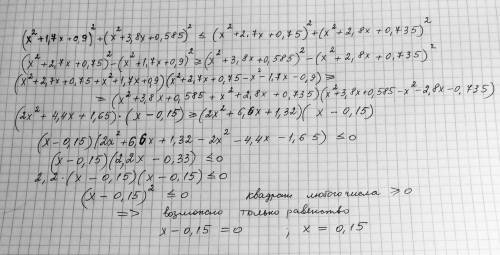 (x²+1,7x+0,9)² + (x²+3,8x+0,585)² ≤ (x²+2,7x+0,75)² + (x²+2,8x+0,735)²
(x²+2,7x+0,75)² - (x²+1,7x+0,9)² ≥ (x²+3,8x+0,585)² - (x²+2,8x+0,735)²
(x²+2,7x+0,75+x²+1,7x+0,9)(x²+2,7x+0,75-x²-1,7x-0,9) ≥
≥ (x²+3,8x+0,585+x²+2,8x+0,735)(x²+3,8x+0,585-x²-2,8x-0,735)
(2x²+4,4x+1,65)·(x-0,15) ≥ (2x²+6,6x+1,32)(x-0,15)
(x-0,15)(2x²+6,6x+1,32-2x²-4,4x-1,65) ≤ 0
(x-0,15)(2,2x-0,33) ≤ 0
2,2·(x-0,15)(x-0,15) ≤ 0
(x-0,15)² ≤ 0 квадрат любого числа ≥ 0
=> возможно только равенство
x-0,15 = 0 ; x = 0,15